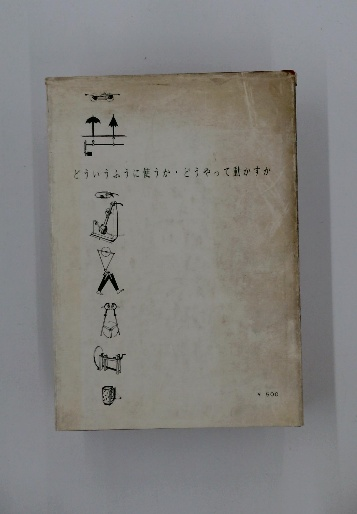 どういうふうに使うか・どうやって動かすか
¥ 500